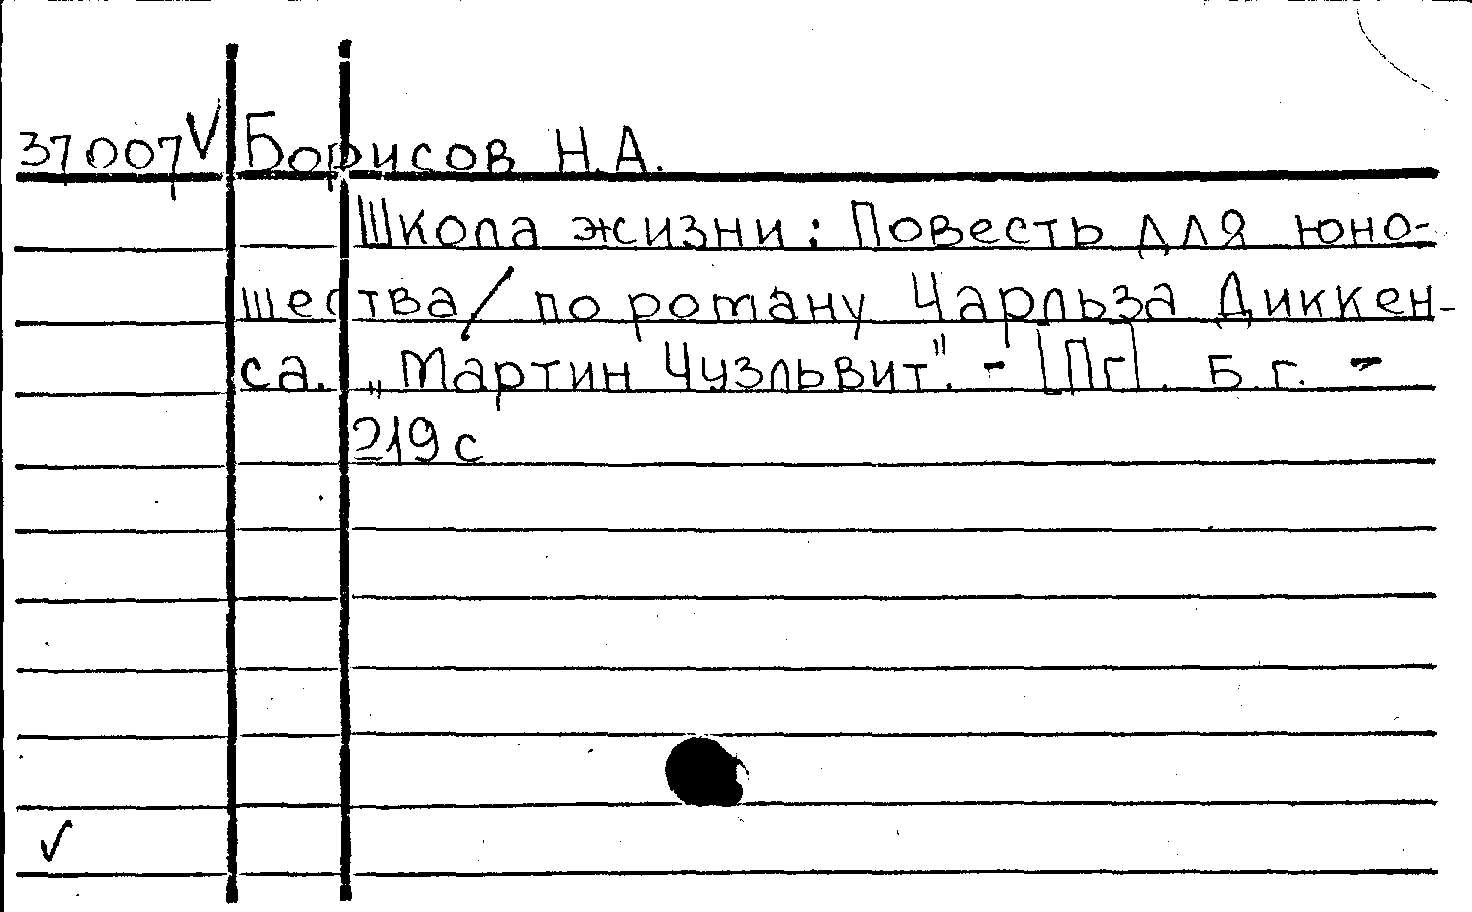 37007 V Борисов Н.А.
Школа жизни: Повесть для юно-
шества/ по роману Чарльза Диккен-
са. „Мартин Чузльвит". - [Пг]. Б.г. -
219 с